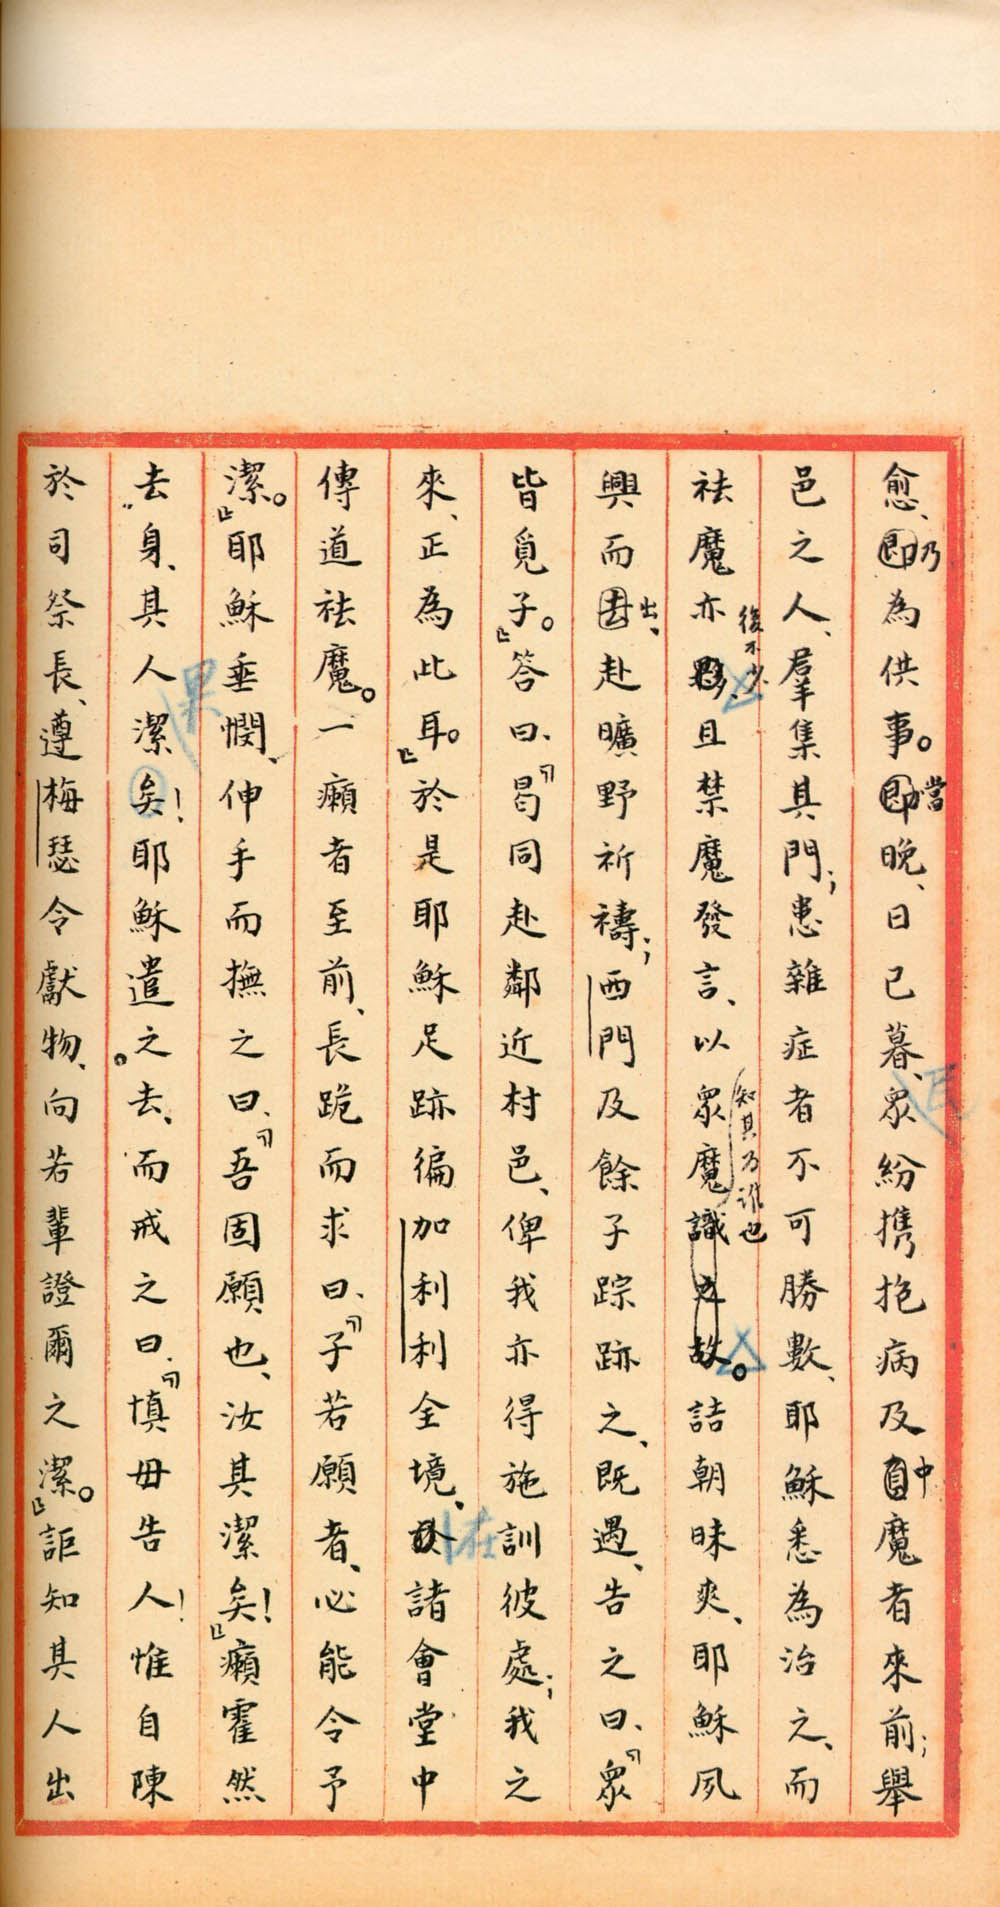 愈、即乃為供事。即當晚、日已暮、眾民紛攜抱病及自中魔者來前；舉
邑之人、羣集其門；患雜症者不可勝數、耶穌悉為治之、而
祛魔亦夥後不少、且禁魔發言、以眾魔識之故知其乃誰也。詰朝昧爽、耶穌夙
興而出、赴曠野祈禱；西門及餘子踪跡之、既遇、告之曰、「眾
皆覓子。」答曰、「曷同赴鄰近村邑、俾我亦得施訓彼處；我之
來、正為此耳。」於是耶穌足跡徧加利利全境、於在諸會堂中
傳道祛魔。一癩者至前、長跪而求曰、「子若願者、必能令予
潔。」耶穌垂憫、伸手而撫之曰、「吾固願也、汝其潔矣！」癩霍然
去身、其人果潔矣！耶穌遣之去、而戒之曰、「慎毋告人！惟自陳
於司祭長、遵梅瑟令獻物、向若輩證爾之潔。」詎知其人出